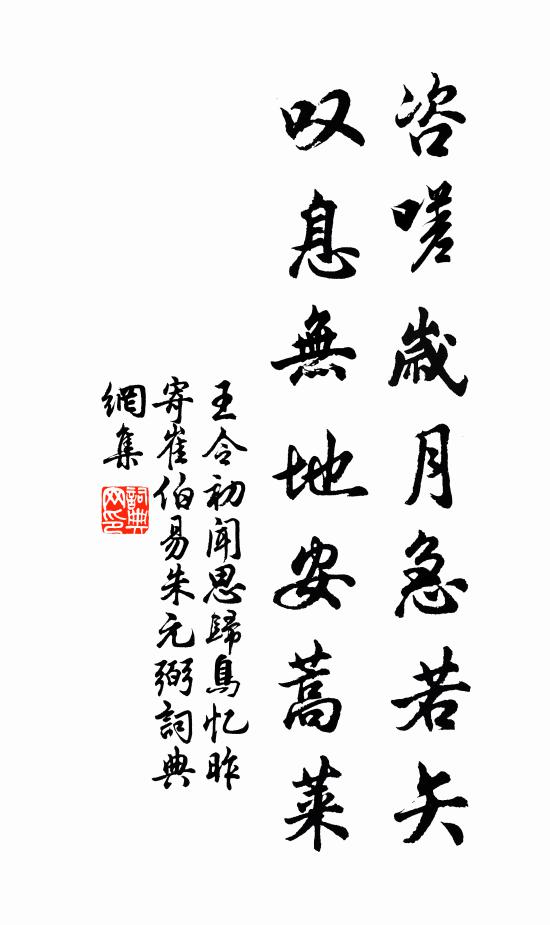 咨嗟歲月急若矢
叹息無地安蒿萊
王令初聞思歸鳥忆昨
寄崔伯易朱元弼詞典
網集
詞典
网印